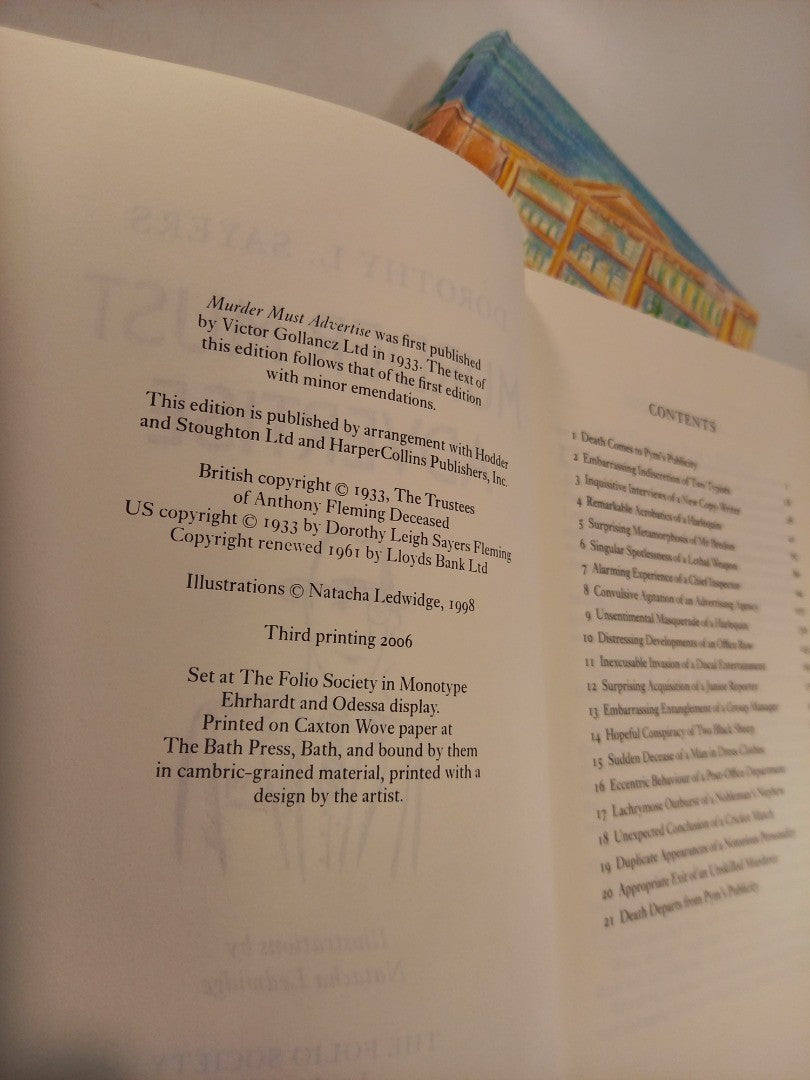 Murder Must Advertise was first published
by Victor Gollancz Ltd in 1933. The text of
this edition follows that of the first edition
with minor emendations.
This edition is published by arrangement with Hodder
and Stoughton Ltd and HarperCollins Publishers, Inc.
British copyright © 1933, The Trustees
of Anthony Fleming Deceased
US copyright © 1933 by Dorothy Leigh Sayers Fleming
Copyright renewed 1961 by Lloyds Bank Ltd
Illustrations © Natacha Ledwidge, 1998
Third printing 2006
Set at The Folio Society in Monotype
Ehrhardt and Odessa display.
Printed on Caxton Wove paper at
The Bath Press, Bath, and bound by them
in cambric-grained material, printed with a
design by the artist.
CONTENTS
1 Death Comes to Pym's Publicity
2 Embarrassing Indiscretion of Two Typists
3 Inquisitive Interviews of a New Copy-Writer
4 Remarkable Acrobatics of a Harlequin
5 Surprising Metamorphosis of Mr Bredon
6 Singular Spotlessness of a Lethal Weapon
7 Alarming Experience of a Chief Inspector
8 Convulsive Agitation of an Advertising Agency
9 Unsentimental Masquerade of a Harlequin
10 Distressing Developments of an Office Row
11 Inexcusable Invasion of a Ducal Entertainment
12 Surprising Acquisition of a Junior Reporter
13 Embarrassing Entanglement of a Group Manager
14 Hopeful Conspiracy of Two Black Sheep
15 Sudden Decease of a Man in Dress Clothes
16 Eccentric Behaviour of a Post-Office Department
17 Lachrymose Outburst of a Nobleman's Nephew
18 Unexpected Conclusion of a Cricket Match
19 Duplicate Appearances of a Notorious Personality
20 Appropriate Exit of an Unskilled Murderer
21 Death Departs from Pym's Publicity
DOROTHY L. SAYERS
Illustrations by
Natacha Ledwidge
THE FOLIO SOCIETY